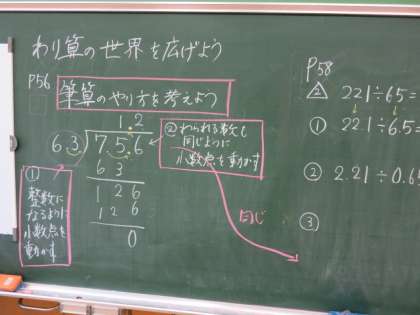 わり算の世界を広げよう
P56
筆算のやり方を考えよう
1.2
6.3)7.5.6
63
126
126
0
①
整数に
なるように
小数点を
動かす
②わられる数も
同じように
小数点を動かす
同じ
P58
△2 221÷65=
① 22.1÷6.5=
② 2.21÷0.65
③